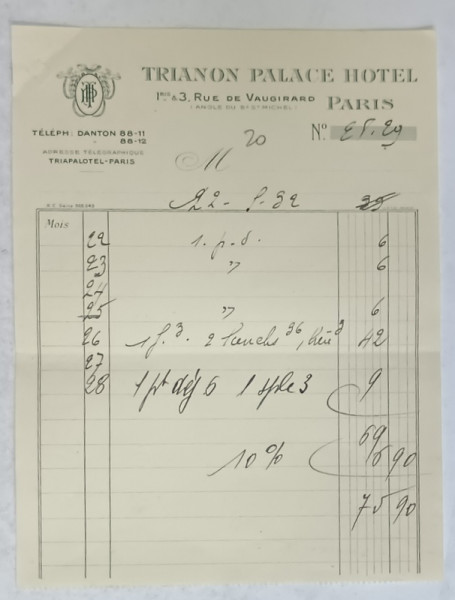 TRIANON PALACE HOTEL
1BIS & 3, RUE DE VAUGIRARD
(ANGLE DU Bd St-MICHEL)
PARIS
TÉLÉPH: DANTON 88-11
88-12
No 25.29
ADRESSE TÉLÉGRAPHIQUE
TRIAPALOTEL-PARIS
M 20
22 - 32
MOIS
22 1. p. d. 6
23 " 6
24
25 " 6
26 2 Lunchs 36, 42
27
28 1 pt déj 6 1 3 9
69
10 % 6 90
75 90